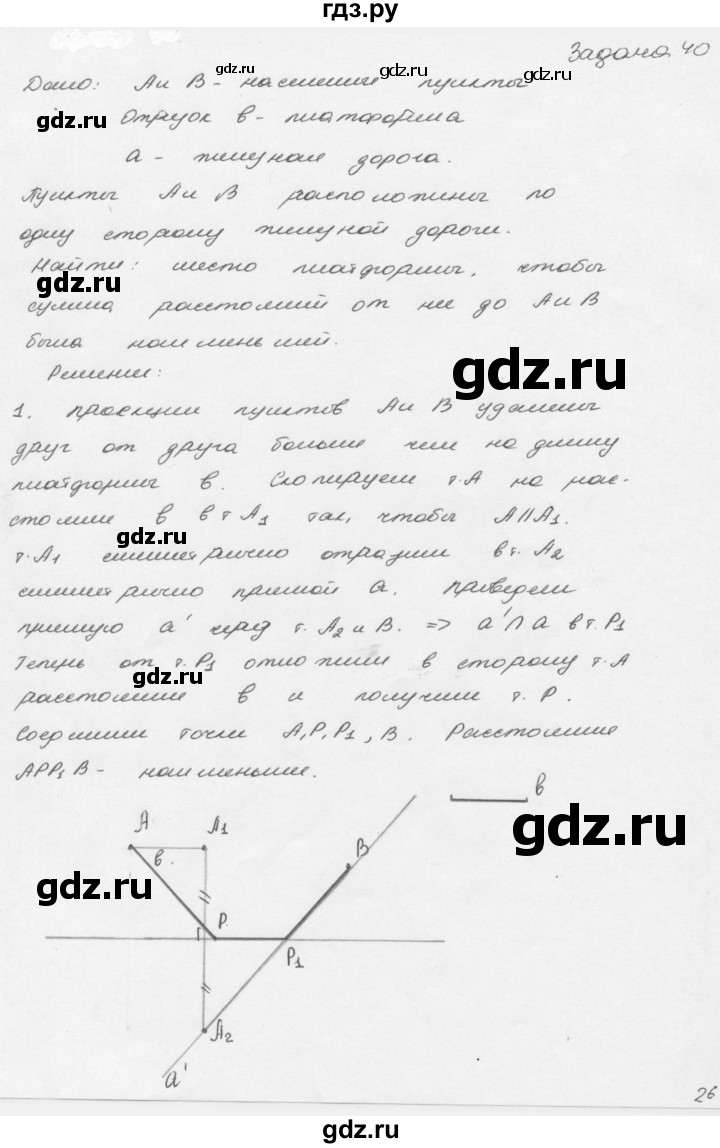 гдз.ру
Задача 40
Дано: А и В - населенные пункты
Отрезок в - платформа
а - железная дорога.
Пункты А и В расположены по
одну сторону железной дороги.
Найти: место платформы, чтобы
сумма расстояний от нее до А и В
была наименьшей.
Решение:
1. Проекции пунктов А и В удалены
друг от друга больше чем на длину
платформы в. Скопируем т.А на рас-
стояние в в т A1 так, чтобы A||A1.
т.A1 симметрично отразим в т. A2
симметрично прямой a. Проведем
прямую a' через т. A2 и B. => a'∩a в т. P1
Теперь от т. P1 отложим в сторону т. А
расстояние в и получим т. P.
Соединим точки A, P, P1, B. Расстояние
APP1B - наименьшее.
в
A
A1
B
в.
P
P1
A2
a'
26
gdz.ru
gdz.ru
gdz.ru
gdz.ru
gdz.ru
gdz.ru
gdz.ru
gdz.ru
gdz.ru
gdz.ru
gdz.ru
gdz.ru